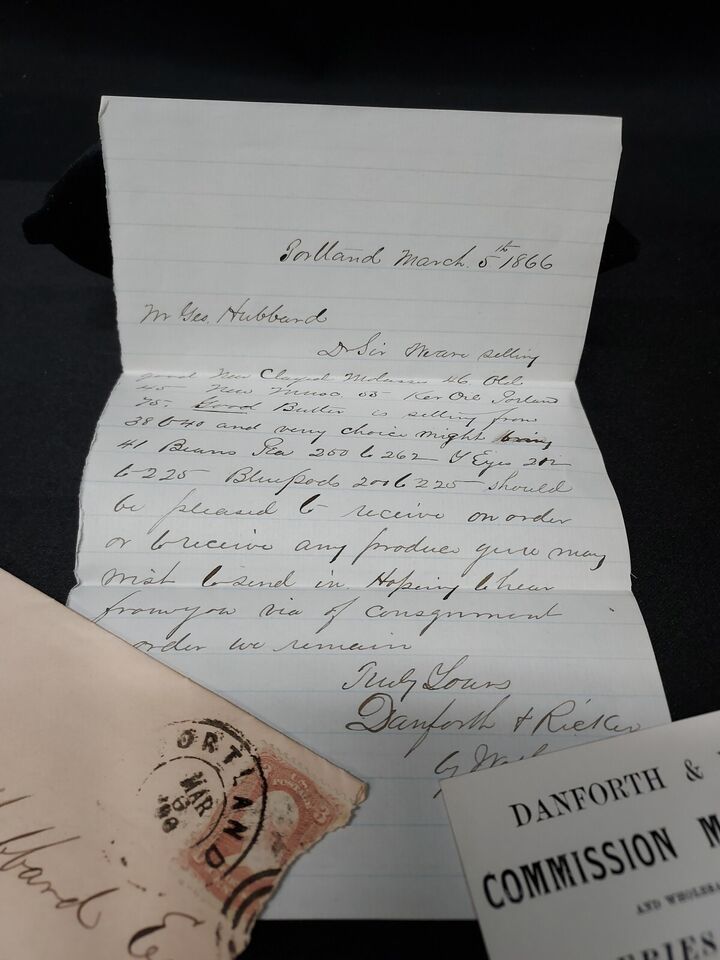 Portland March. 5th 1866
Mr Geo. Hubbard
Dr Sir We are selling
good New Clayed Molasses 46 Old
45 New Musc. 55 Ker Oil Portland
75. Good Butter is selling from
38 to 40 and very choice might bring
41 Beans Pea 250 to 262 Y Eyes
to 225 Bluepods 200 to 225 should
be pleased to receive an order
or to receive any produce you may
wish to send in. Hoping to hear
from you via of consignment
order we remain
Truly Yours
Danforth & Ricker
PORTLAND
MAR
3
Hubbard
DANFORTH &
COMMISSION M
AND WHOLESA
ERIES